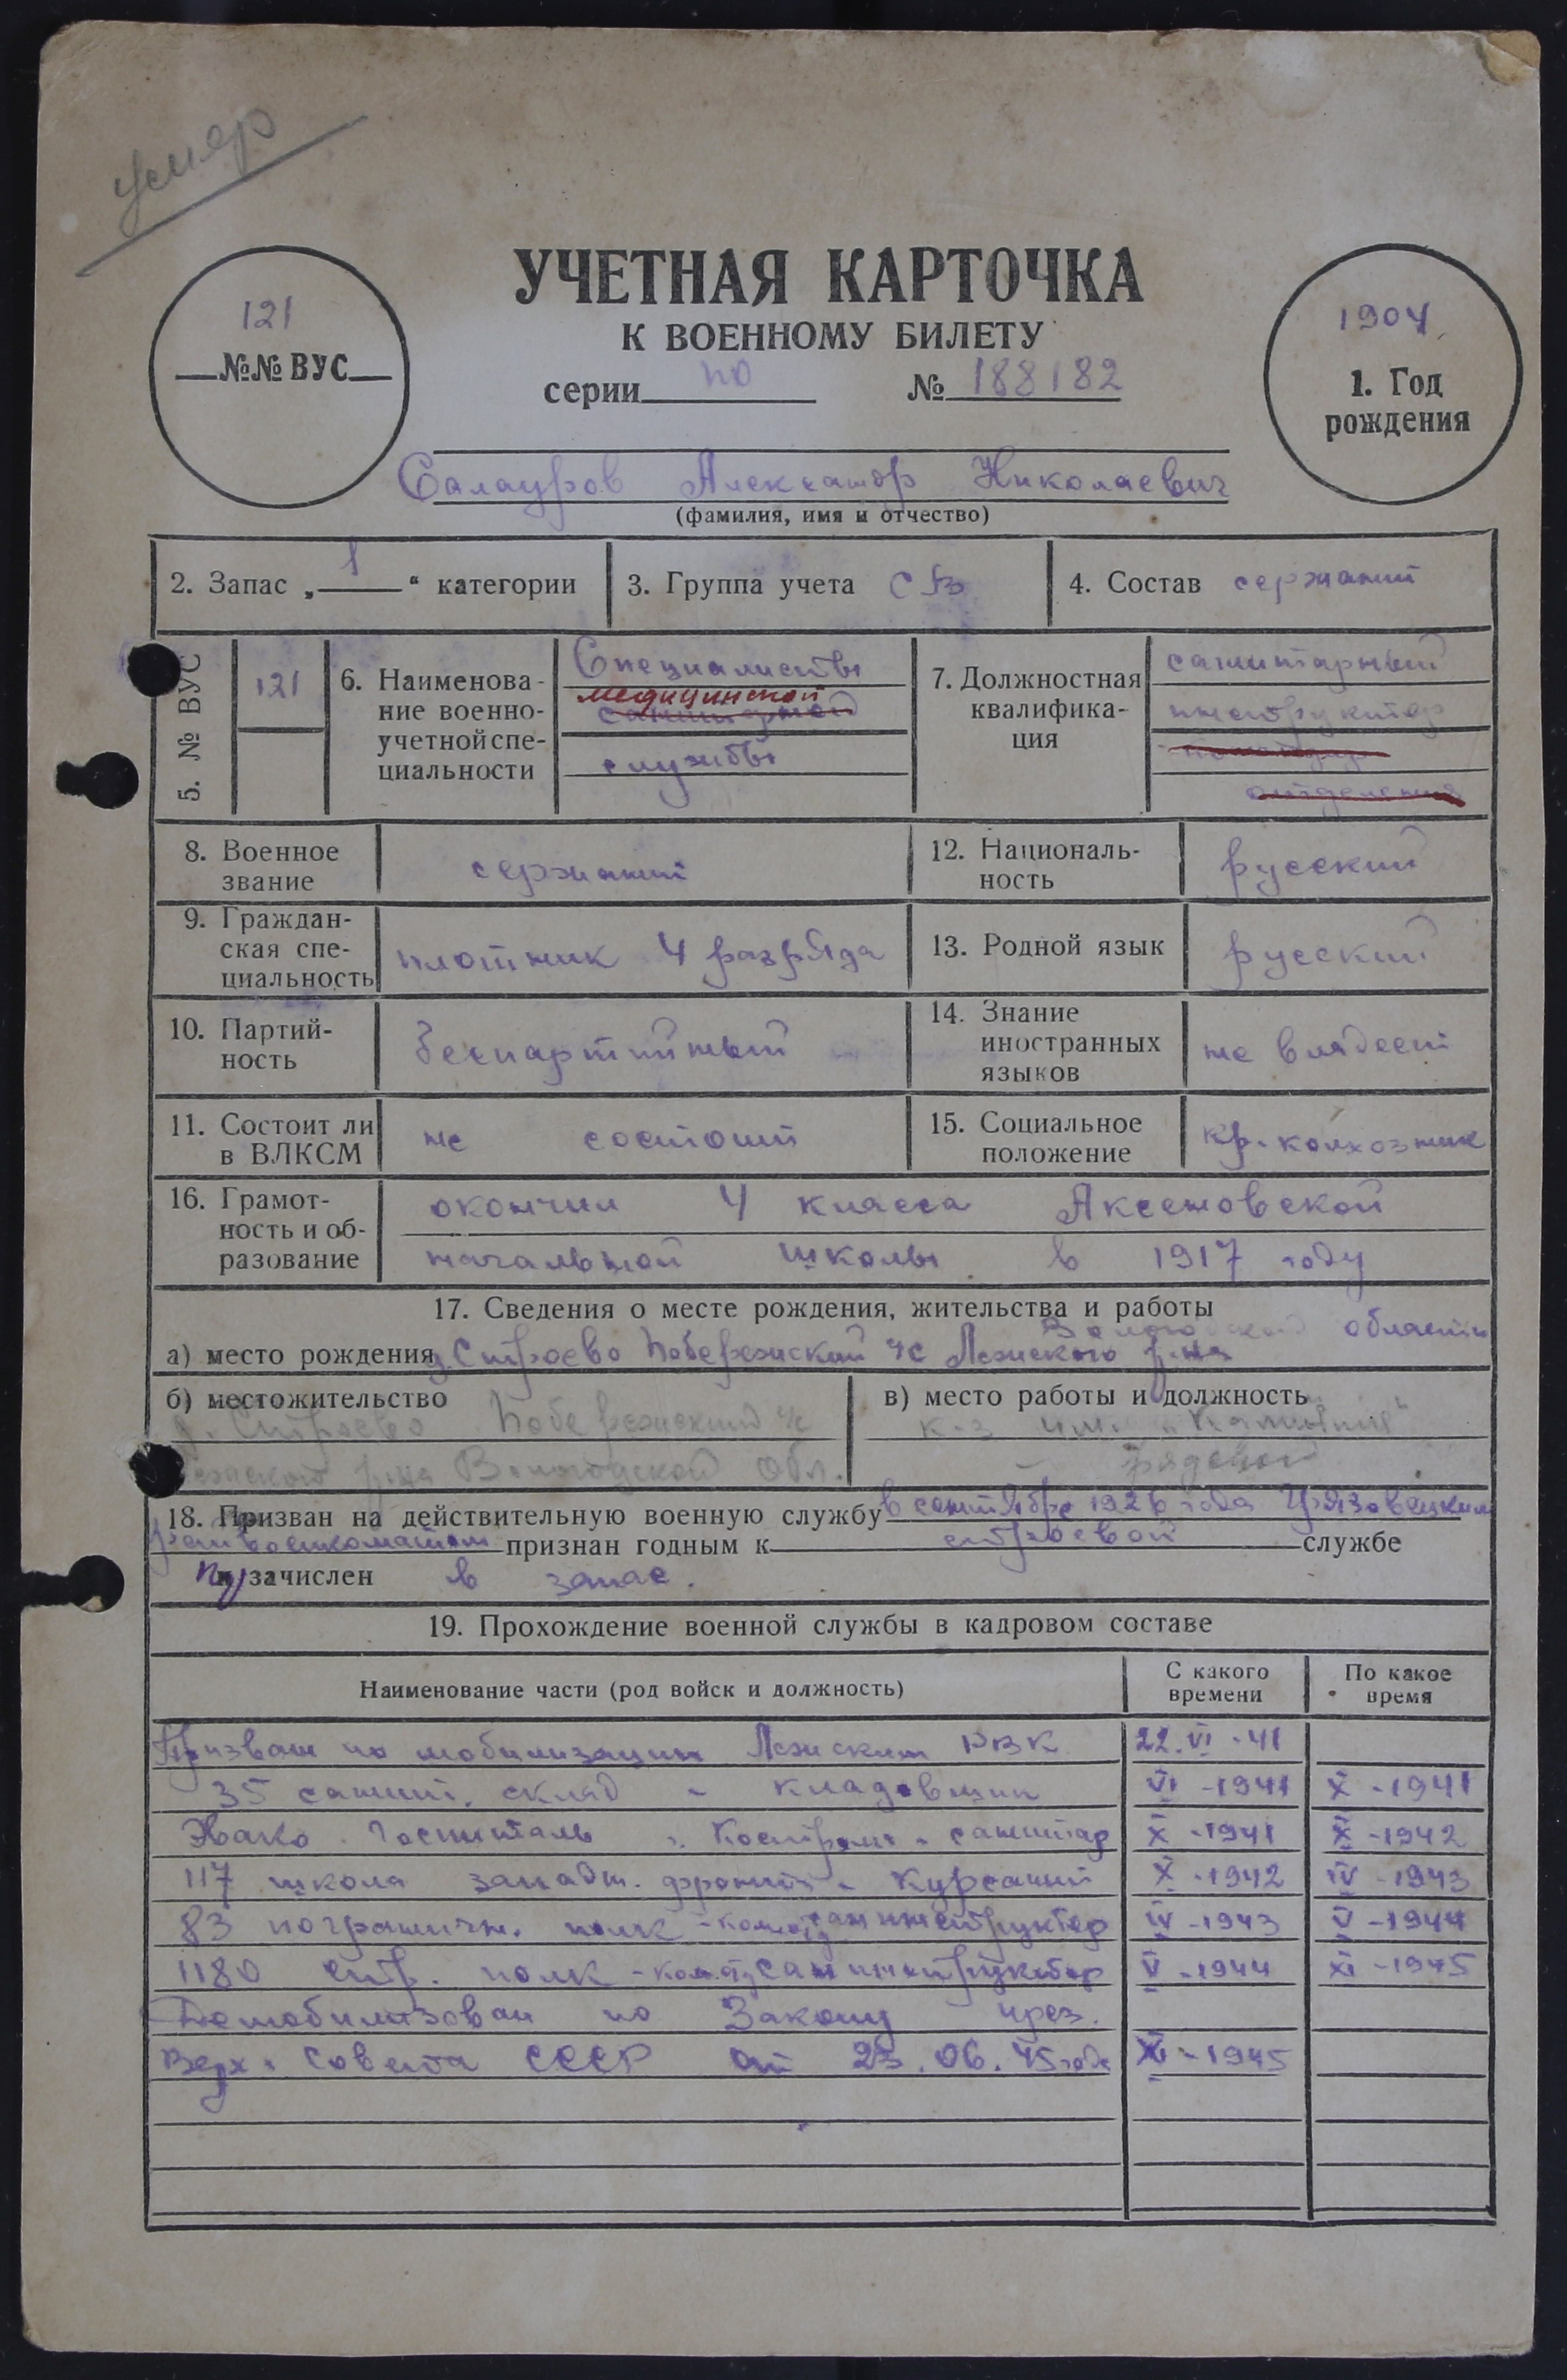 умер
121
№№ ВУС
УЧЕТНАЯ КАРТОЧКА
К ВОЕННОМУ БИЛЕТУ
серии по № 188182
1904
1. Год
рождения
Салауров Александр Николаевич
(фамилия, имя и отчество)
2. Запас „ 1 “ категории
3. Группа учета СВ
4. Состав сержант
5. № ВУС
121
6. Наименова-
ние военно-
учетной спе-
циальности
Специалисты
медицинской
санитарной
службы
7. Должностная
квалифика-
ция
санитарный
инструктор
отделения
8. Военное
звание
сержант
12. Националь-
ность
русский
9. Граждан-
ская спе-
циальность
плотник 4 разряда
13. Родной язык
русский
10. Партий-
ность
беспартийный
14. Знание
иностранных
языков
не владеет
11. Состоит ли
в ВЛКСМ
не состоит
15. Социальное
положение
кр. колхозник
16. Грамот-
ность и об-
разование
окончил 4 класса Аксеновской
начальной школы в 1917 году
17. Сведения о месте рождения, жительства и работы
Вологодской области
а) место рождения д. Строево Побережский с/с Лежского р-на
б) местожительство
д. Строево Побережский с/с
Лежского р-на Вологодской обл.
в) место работы и должность
к-з им.
рядовой
18. Призван на действительную военную службу в сентябре 1926 года Грязовецким
райвоенкоматом признан годным к строевой службе
и зачислен в запас.
19. Прохождение военной службы в кадровом составе
Наименование части (род войск и должность)
С какого
времени
По какое
время
Призван по мобилизации Лежским РВК 22.VI-41
35 санит. склад - кладовщик VI-1941 X-1941
Эвако. госпиталь г. Кострома - санитар X-1941 X-1942
117 школа западн. фронта - курсант X-1942 IV-1943
83 пограничн. полк - санинструктор IV-1943 V-1944
1180 стр. полк - санинструктор V-1944 XI-1945
Демобилизован по Закону през.
Верх. Совета СССР от 23.06.45 года XI-1945